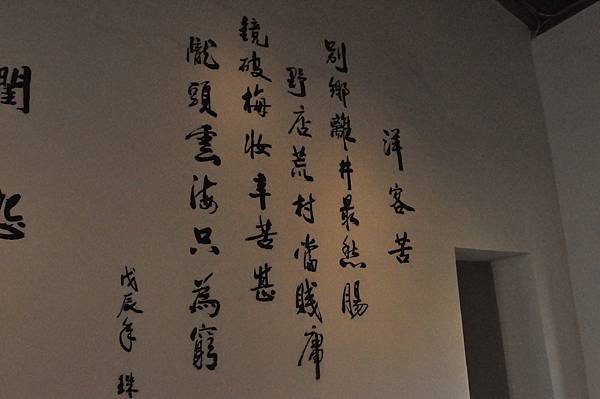 洋客苦
別鄉離井最愁腸
野店荒村當賤庸
鏡破梅妝辛苦甚
隴頭雲海只為窮
戊辰年 珠
閨怨